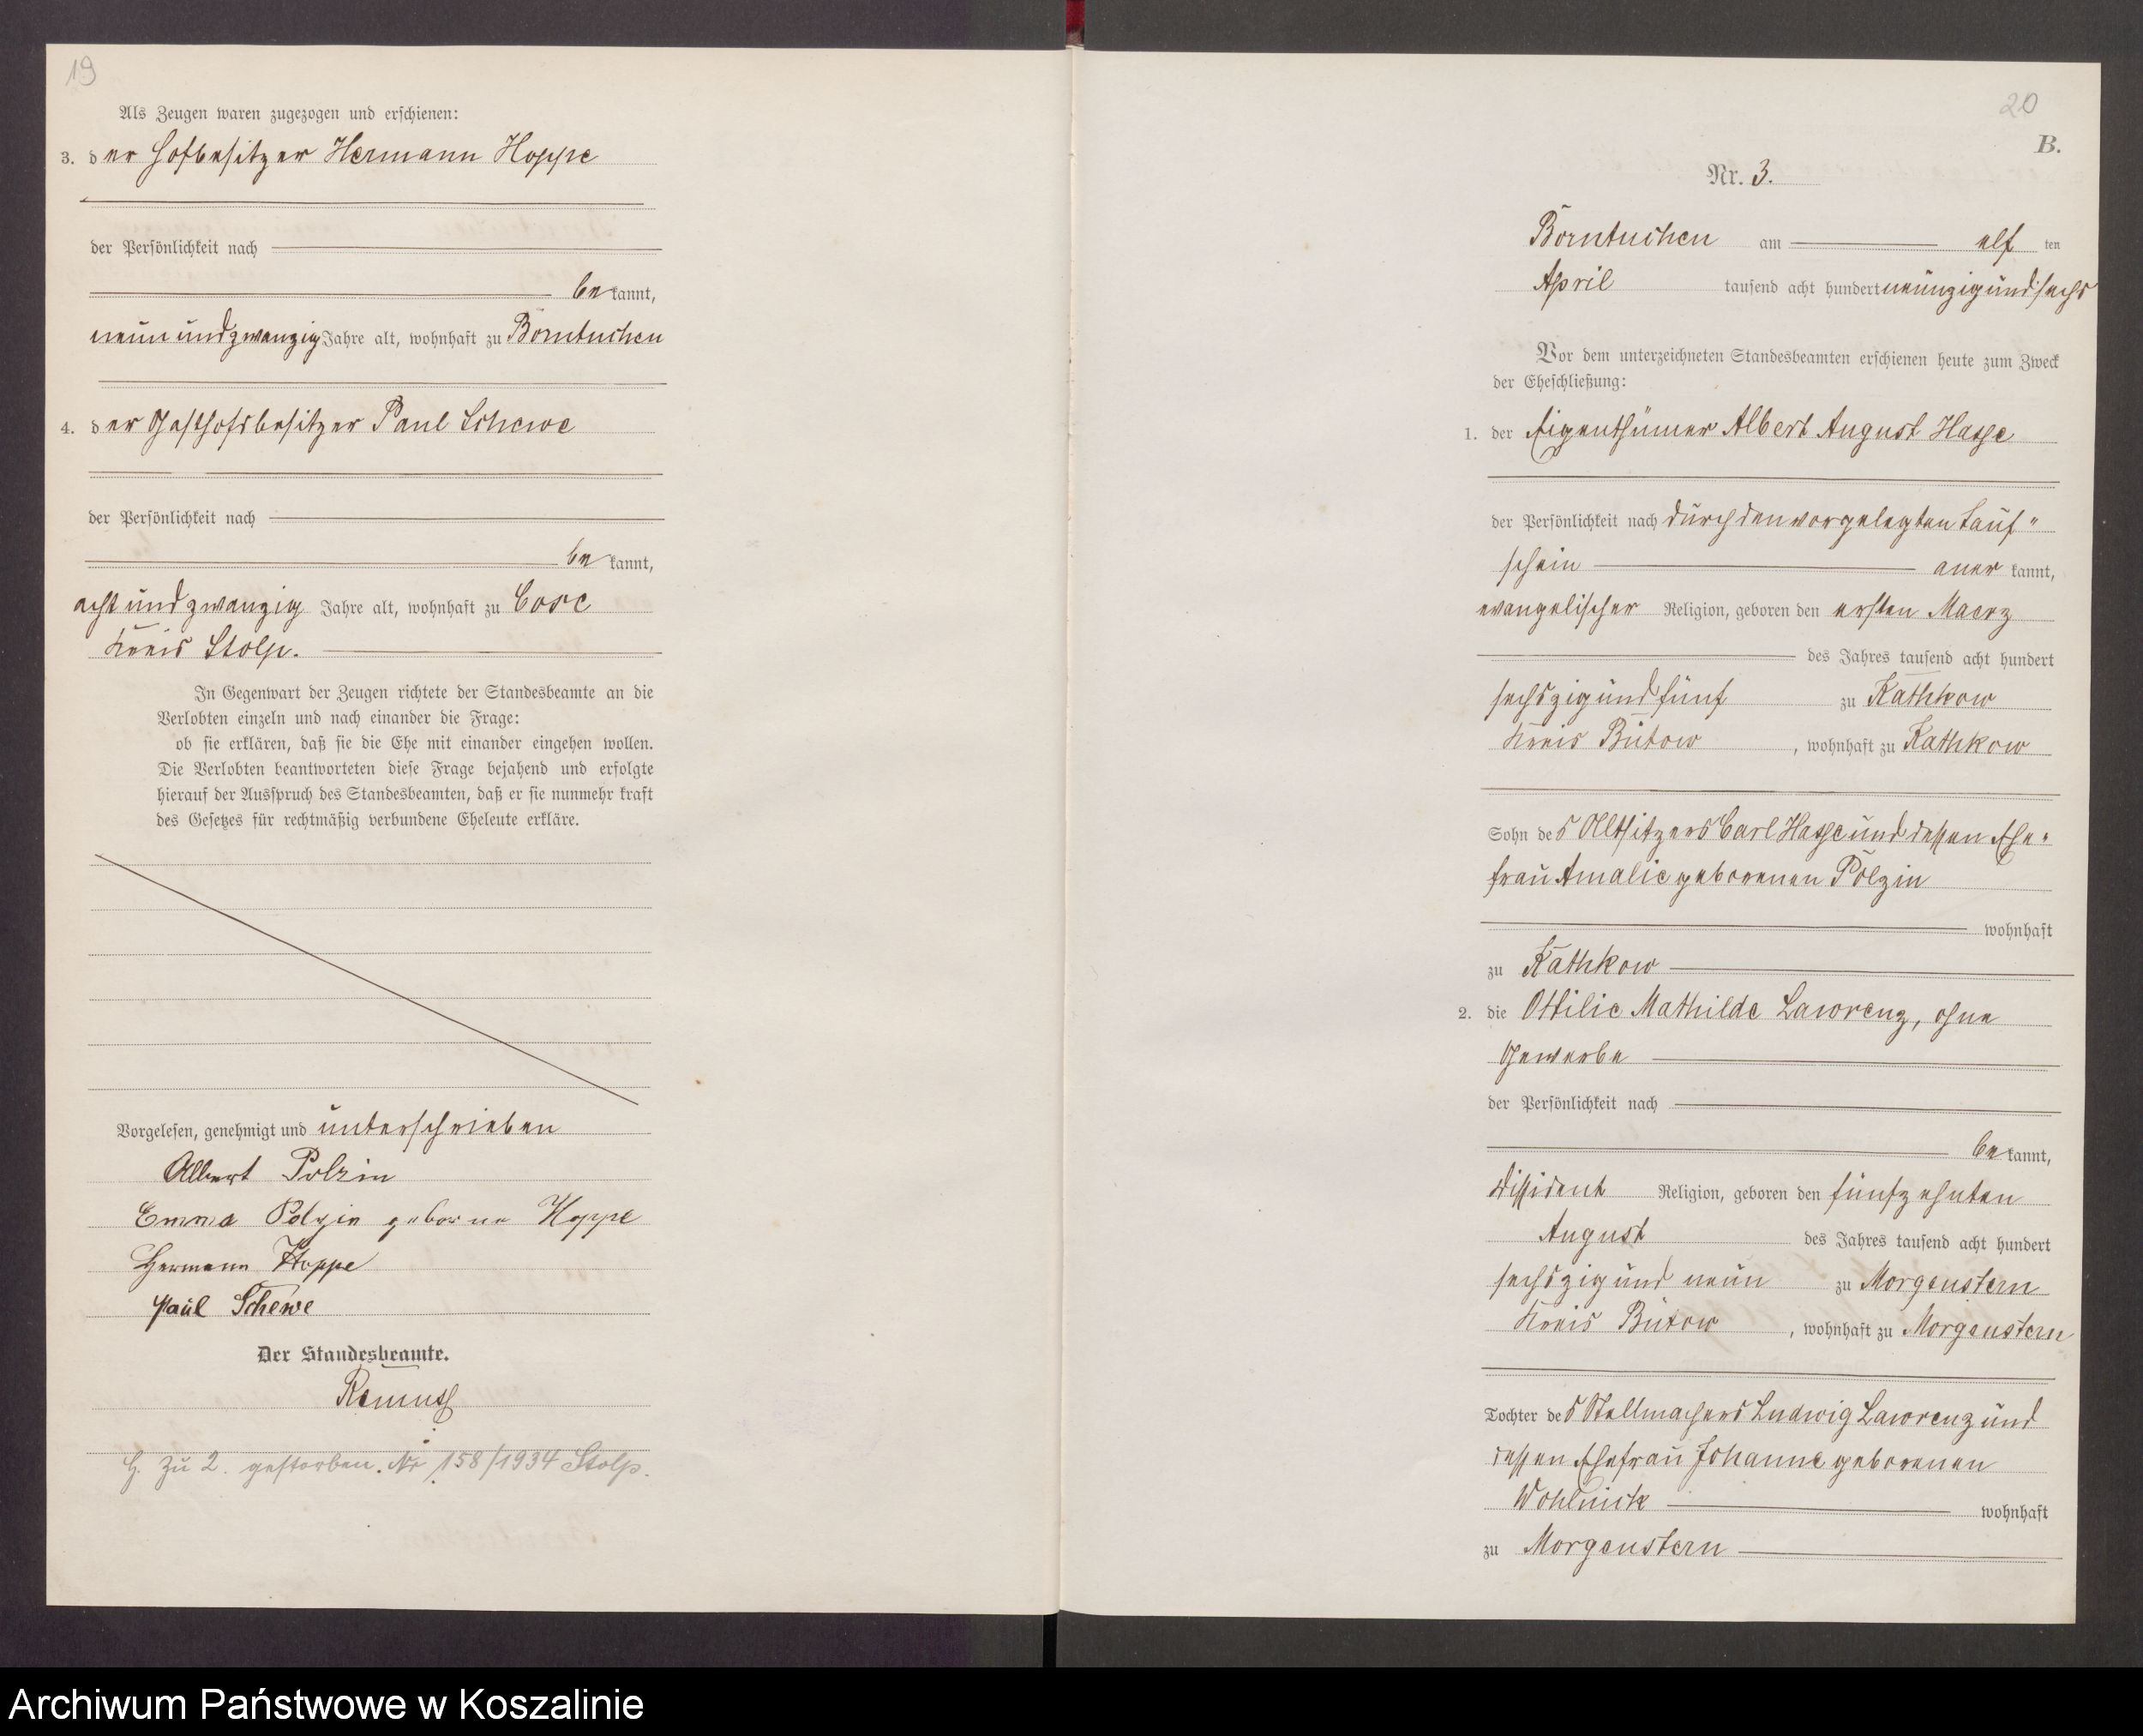 19
Als Zeugen waren zugezogen und erschienen:
3. der Hofbesitzer Hermann Hoppe
der Persönlichkeit nach
bekannt,
neun und zwanzig Jahre alt, wohnhaft zu Borntuchen
4. der Gasthofsbesitzer Paul Schewe
der Persönlichkeit nach
bekannt,
acht und zwanzig Jahre alt, wohnhaft zu Cose
Kreis Stolp.
In Gegenwart der Zeugen richtete der Standesbeamte an die
Verlobten einzeln und nach einander die Frage:
ob sie erklären, daß sie die Ehe mit einander eingehen wollen.
Die Verlobten beantworteten diese Frage bejahend und erfolgte
hierauf der Ausspruch des Standesbeamten, daß er sie nunmehr kraft
des Gesetzes für rechtmäßig verbundene Eheleute erkläre.
Vorgelesen, genehmigt und unterschrieben
Albert Polzin
Emma Polzin geborne Hoppe
Hermann Hoppe
Paul Schewe
Der Standesbeamte.
H. zu 2. gestorben. Nr 158/1934 Stolp.
20
B.
Nr. 3.
Borntuchen am elf ten
April tausend acht hundert neunzig und sechs
Vor dem unterzeichneten Standesbeamten erschienen heute zum Zweck
der Eheschließung:
1. der Eigenthümer Albert August Hasse
der Persönlichkeit nach durch den vorgelegten Tauf"
schein anerkannt,
evangelischer Religion, geboren den ersten Maerz
des Jahres tausend acht hundert
sechszig und fünf zu Kathkow
Kreis Bütow, wohnhaft zu Kathkow
Sohn des Altsitzers Carl Hasse und dessen Ehe-
frau Amalie geborenen Polzin
wohnhaft
zu Kathkow
2. die Ottilie Mathilde Lawrenz, ohne
Gewerbe
der Persönlichkeit nach
bekannt,
Dissident Religion, geboren den fünfzehnten
August des Jahres tausend acht hundert
sechszig und neun zu Morgenstern
Kreis Bütow, wohnhaft zu Morgenstern
Tochter des Stellmachers Ludwig Lawrenz und
dessen Ehefrau Johanne geborenen
wohnhaft
zu Morgenstern
Archiwum Państwowe w Koszalinie